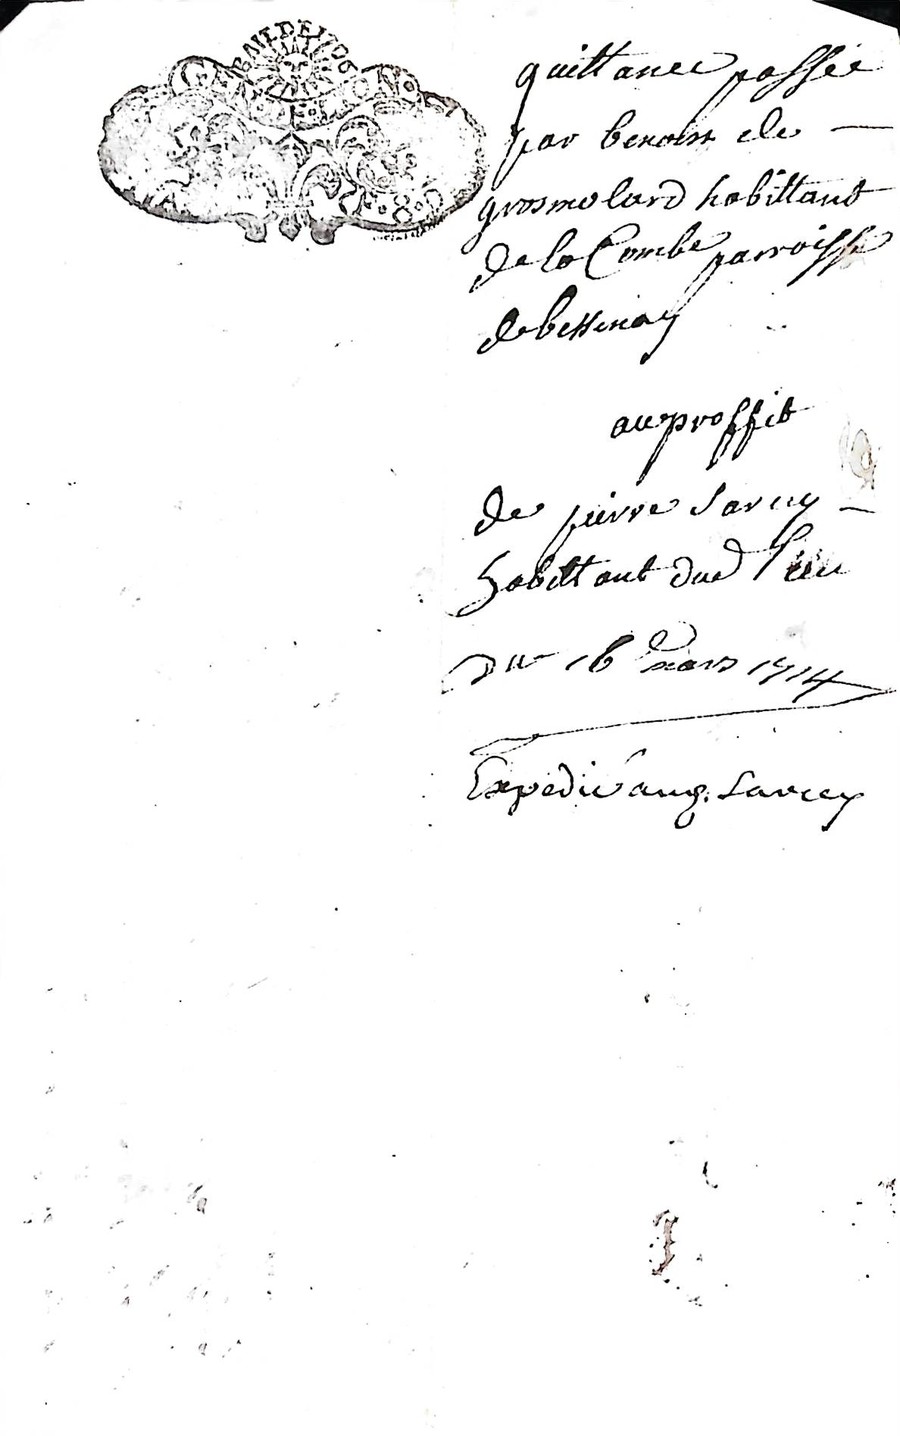 GEN. DE LIONO
quittance passée
par benoist de —
grosmolard habittant
de la Combe parroisse
de bessenay
au proffit
de pierre Sarcey —
habittant dud lieu
Du 16 mars 1714
Expedié aud. Sarcey